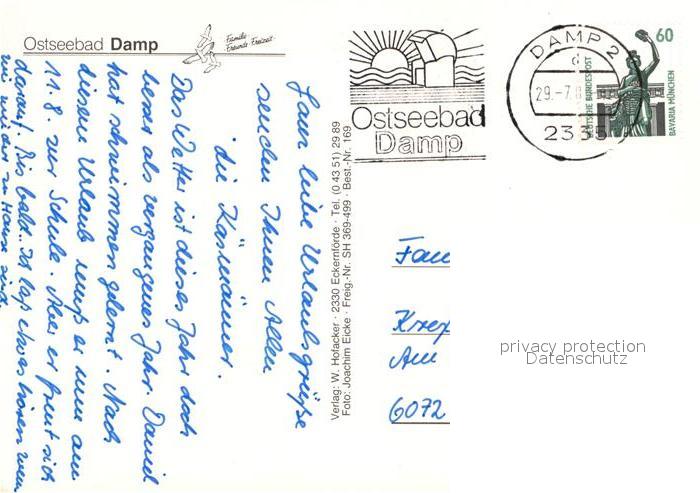 Ostseebad Damp
Familie · Freunde · Freizeit ·
Ganz liebe Urlaubsgrüße
senden Ihnen Allen
die Käsmänner.
Das Wetter ist dieses Jahr doch
besser als vergangenes Jahr. Daniel
hat schwimmen gelernt. Nach
diesem Urlaub muß er nun am
11.8. zur Schule. Aber er freut sich
darauf. Bis bald. Ich laß etwas hören wenn
wir wieder zu Hause sind.
Verlag: W. Hofacker · 2330 Eckernförde · Tel. (0 43 51) 29 89
Foto: Joachim Eicke · Freig.-Nr. SH 369-499 · Best.-Nr. 169
Ostseebad
Damp
DAMP 2
d
29.-7.8
2335
60
DEUTSCHE BUNDESPOST
BAVARIA MÜNCHEN
Fam
Am
6072
privacy protection
Datenschutz